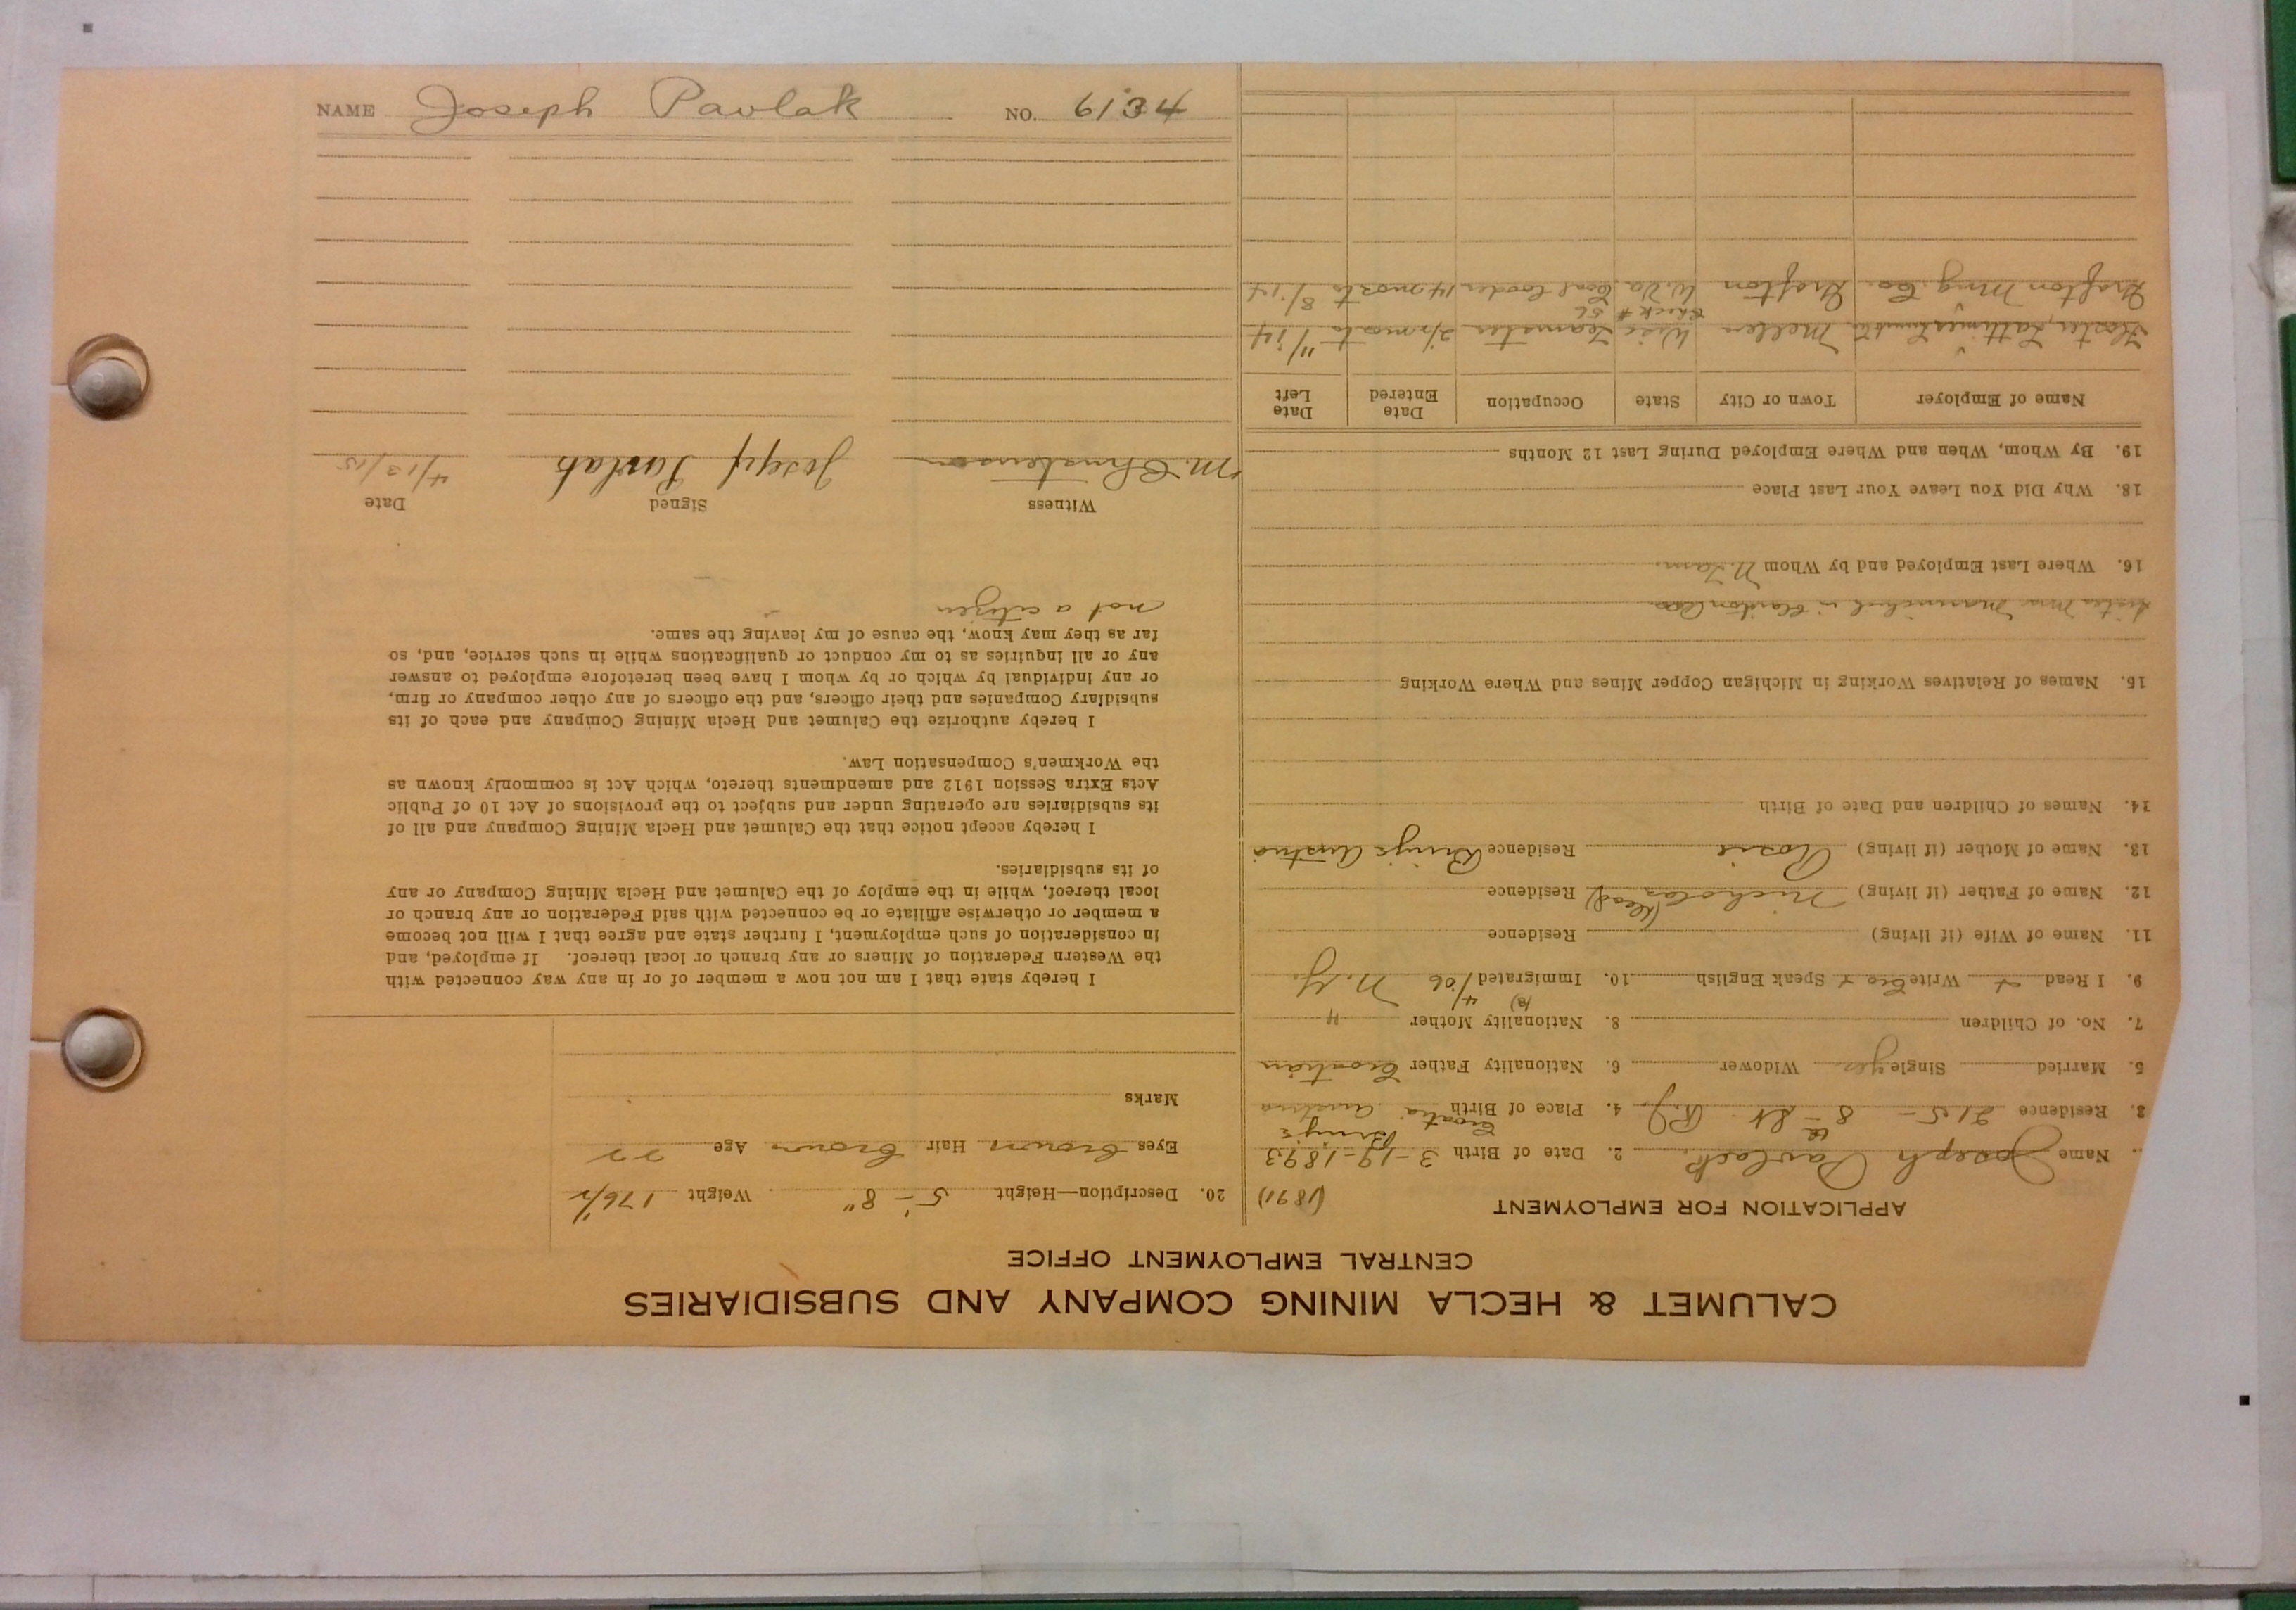 NAME Joseph Pavlak NO. 6134
CALUMET & HECLA MINING COMPANY AND SUBSIDIARIES
CENTRAL EMPLOYMENT OFFICE
APPLICATION FOR EMPLOYMENT (1891)
Name Joseph Pavlack 2. Date of Birth 3-19-1893
3. Residence 215 - 8th St. R.J. 4. Place of Birth Croatia Austria
5. Married Single yes Widower 6. Nationality Father Croatian
7. No. of Children 8. Nationality Mother "
9. I Read + Write Cro + Speak English 10. Immigrated 4/06 N.Y.
11. Name of Wife (if living) Residence
12. Name of Father (if living) Nicholas (dead) Residence
13. Name of Mother (if living) Rosie Residence Austria
14. Names of Children and Date of Birth
15. Names of Relatives Working in Michigan Copper Mines and Where Working
16. Where Last Employed and by Whom
18. Why Did You Leave Your Last Place
19. By Whom, When and Where Employed During Last 12 Months
Name of Employer Town or City State Occupation Date Entered Date Left
Mellen Wisc Teamster 2½ mos to 11/14
check # 56
Grafton Mng. Co. Grafton W. Va. Coal loader 14 mos to 8/14
20. Description—Height 5'-8" Weight 176½
Eyes brown Hair brown Age 22
Marks
I hereby state that I am not now a member of or in any way connected with
the Western Federation of Miners or any branch or local thereof. If employed, and
in consideration of such employment, I further state and agree that I will not become
a member or otherwise affiliate or be connected with said Federation or any branch or
local thereof, while in the employ of the Calumet and Hecla Mining Company or any
of its subsidiaries.
I hereby accept notice that the Calumet and Hecla Mining Company and all of
its subsidiaries are operating under and subject to the provisions of Act 10 of Public
Acts Extra Session 1912 and amendments thereto, which Act is commonly known as
the Workmen's Compensation Law.
I hereby authorize the Calumet and Hecla Mining Company and each of its
subsidiary Companies and their officers, and the officers of any other company or firm,
or any individual by which or by whom I have been heretofore employed to answer
any or all inquiries as to my conduct or qualifications while in such service, and, so
far as they may know, the cause of my leaving the same.
not a citizen
Witness Signed Date
M. Christenson Joseph Pavlak 4/13/15